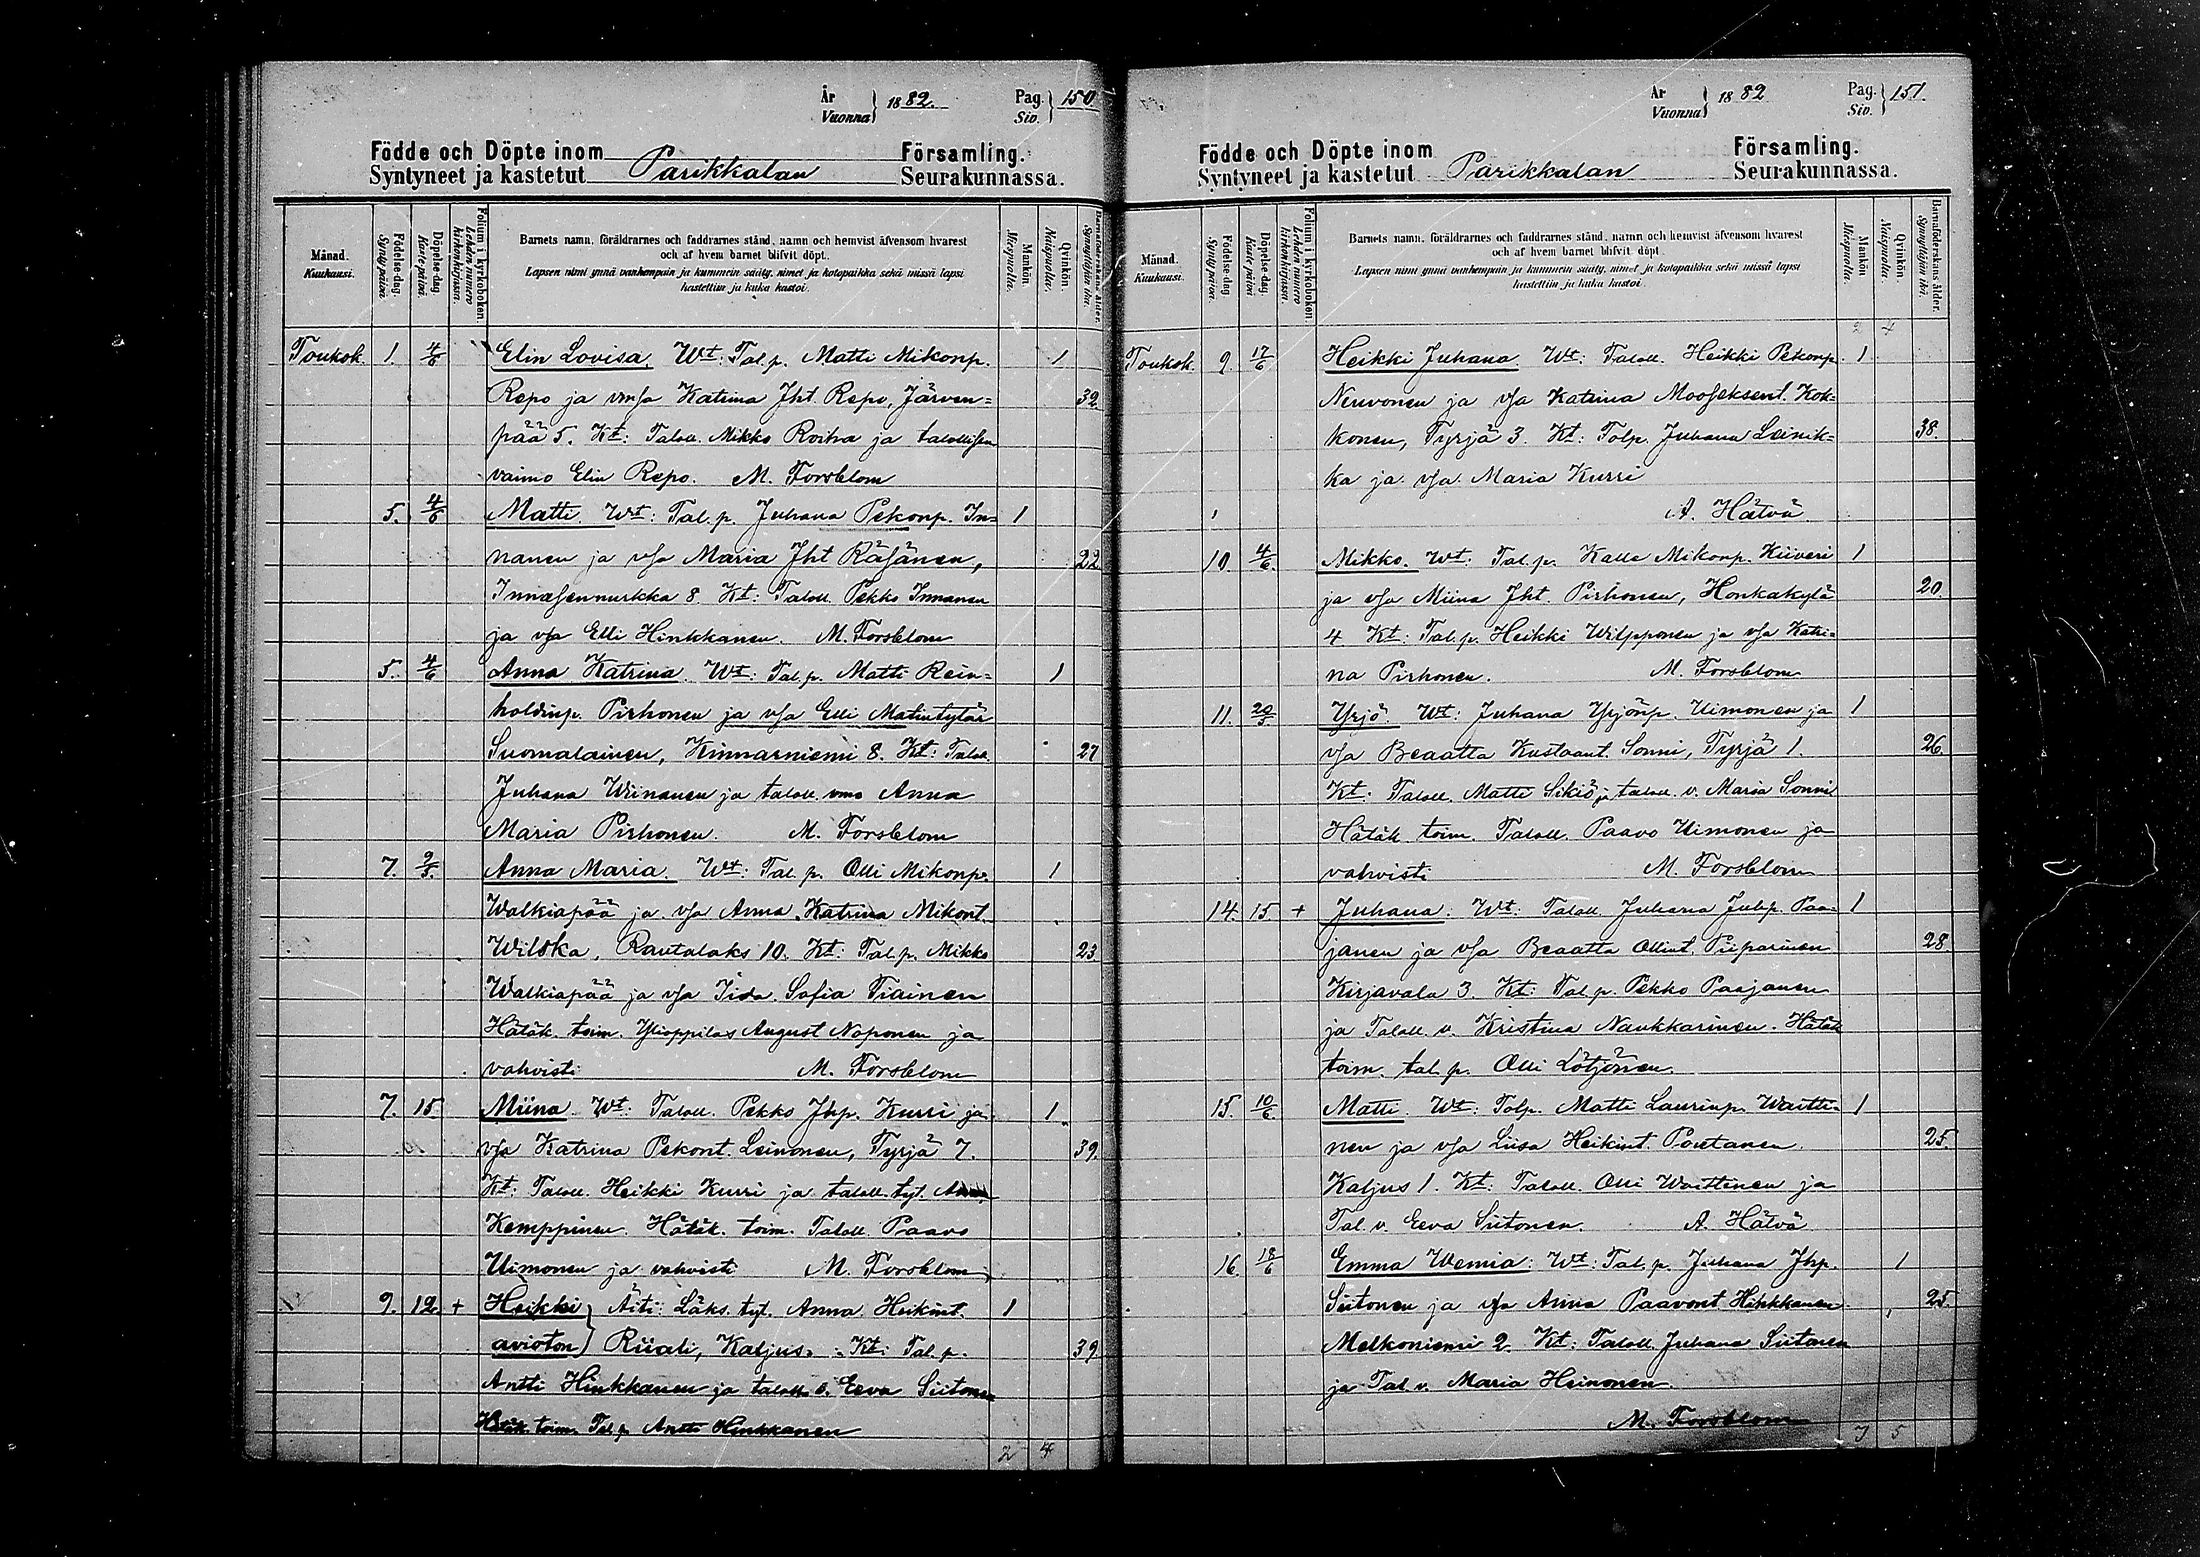 År
Vuonna } 1882. Pag. Siv. } 150
Födde och Döpte inom Parikkalan Församling.
Syntyneet ja kastetut Seurakunnassa.
Månad. Kuukausi.
Födelse-dag. Synty päivä.
Döpelse-dag. Kaste päivä.
Folium i kyrkoboken. Lehden numero kirkonkirjassa.
Barnets namn, föräldrarnes och faddrarnes stånd, namn och hemvist äfvensom hvarest
och af hvem barnet blifvit döpt.
Lapsen nimi ynnä vanhempain ja kummein sääty, nimet ja kotopaikka sekä missä lapsi
kastettiin ja kuka kastoi.
Mankön. Miespuolia.
Qvinkön. Naispuolia.
Barnaföderskans ålder. Synnyttäjän ikä.
Toukok. 1. 4/6 Elin Lovisa. Wt: Tal.p. Matti Mikonp. 1
Repo ja vmsa Katrina Jht. Repo, Järven= 32.
pää 5. Kt: Taloll. Mikko Roiha ja talollisen
vaimo Elin Repo. M. Forsblom
5. 4/6 Matti. Wt: Tal.p. Juhana Pekonp. In= 1
nanen ja vsa Maria Jht Räsänen, 22
Innasennurkka 8 Kt: Taloll. Pekko Innanen
ja vsa Elli Hinkkanen. M. Forsblom
5. 4/6 Anna Katrina. Wt: Tal.p. Matti Rein= 1
holdinp. Pirhonen ja vsa Elli Matintytär
Suomalainen, Kinnarniemi 8. Kt: Taloll. 27
Juhana Wiinanen ja taloll. vmo Anna
Maria Pirhonen. M. Forsblom
7. 9/5. Anna Maria. Wt: Tal.p. Olli Mikonp. 1
Walkiapää ja vsa Anna Katrina Mikont.
Wilska, Rautalaks 10. Kt: Tal.p. Mikko 23
Walkiapää ja vsa Iida Sofia Tiainen
Hätäk. toim. Ylioppilas August Naponen ja
vahvisti M. Forsblom
7. 15. Miina. Wt: Taloll. Pekko Jhp. Kurri ja 1
vsa Katrina Pekont. Leinonen, Tyrjä 7. 39.
Kt: Taloll. Heikki Kurri ja taloll. tyt. Anna
Kemppinen. Hätäk. toim. Taloll. Paavo
Uimonen ja vahvisti M. Forsblom
9. 12. + Heikki } Äiti: Läks. tyt. Anna Heikint. 1
avioton } Riiali, Kaljus. Kt: Tal.p. 39
Antti Hinkkanen ja taloll. v. Eeva Siitonen
Hätäk. toim. Tal.p. Antti Hinkkanen
2 4
År
Vuonna } 1882 Pag. Siv. } 151.
Födde och Döpte inom Parikkalan Församling.
Syntyneet ja kastetut Seurakunnassa.
Månad. Kuukausi.
Födelse-dag. Synty päivä.
Döpelse-dag. Kaste päivä.
Folium i kyrkoboken. Lehden numero kirkonkirjassa.
Barnets namn, föräldrarnes och faddrarnes stånd, namn och hemvist äfvensom hvarest
och af hvem barnet blifvit döpt.
Lapsen nimi ynnä vanhempain ja kummein sääty, nimet ja kotopaikka sekä missä lapsi
kastettiin ja kuka kastoi.
Mankön. Miespuolia.
Qvinkön. Naispuolia.
Barnaföderskans ålder. Synnyttäjän ikä.
2 4
Toukok. 9. 17/6 Heikki Juhana. Wt: Taloll. Heikki Pekonp. 1
Neuvonen ja vsa Katrina Mooseksent. Kok=
konen, Tyrjä 3. Kt: Talp. Juhana Leinik= 38.
ka ja vsa Maria Kurri
A. Hätvä.
10. 4/6. Mikko. Wt: Tal.p. Kalle Mikonp. Kiiveri 1
ja vsa Miina Jht. Pirhonen, Honkakylä 20.
4 Kt: Tal.p. Heikki Wilpponen ja vsa Katri=
na Pirhonen. M. Forsblom
11. 20/5 Yrjö. Wt: Juhana Yrjönp. Uimonen ja 1
vsa Beaatta Kustaant. Sonni, Tyrjä 1. 26.
Kt: Taloll. Matti Sikiö ja taloll. v. Maria Sonni
Hätäk. toim. Taloll. Paavo Uimonen ja
vahvisti M. Forsblom
14. 15 + Juhana. Wt: Taloll. Juhana Juhp. Paa= 1
janen ja vsa Beaatta Ollint. Piiparinen 28.
Kirjavala 3. Kt: Tal.p. Pekko Paajanen
ja Taloll. v. Kristina Naukkarinen. Hätäk
toim. tal.p. Olli Lötjönen.
15. 10/6. Matti. Wt: Talp. Matti Laurinp. Waitti= 1
nen ja vsa Liisa Heikint. Poutanen. 25.
Kaljus 1. Kt: Taloll. Olli Waittinen ja
Tal. v. Eeva Siitonen. A. Hätvä
16. 18/6 Emma Wemia: Wt: Tal.p. Juhana Jhp. 1
Siitonen ja vsa Anna Paavont Hinkkanen 25.
Melkoniemi 2. Kt: Taloll. Juhana Siitonen
ja Tal. v. Maria Heinonen.
M. Forsblom
7 5